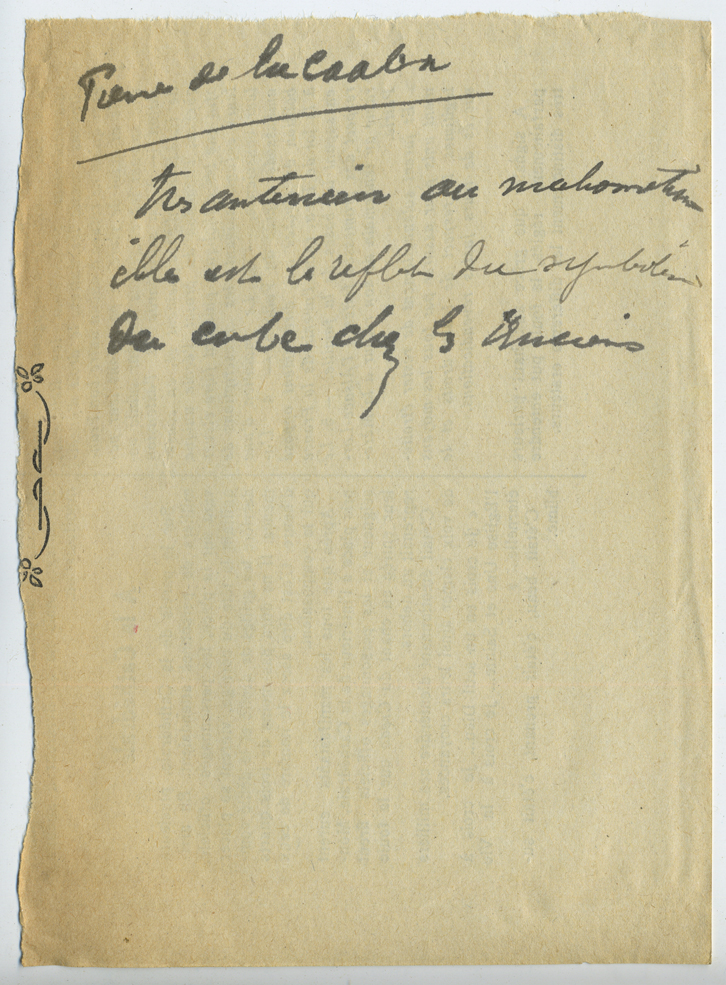 Pierre de la Caaba
très antérieur au mahométisme
elle est le reflet du symbolisme
du cube chez les Anciens